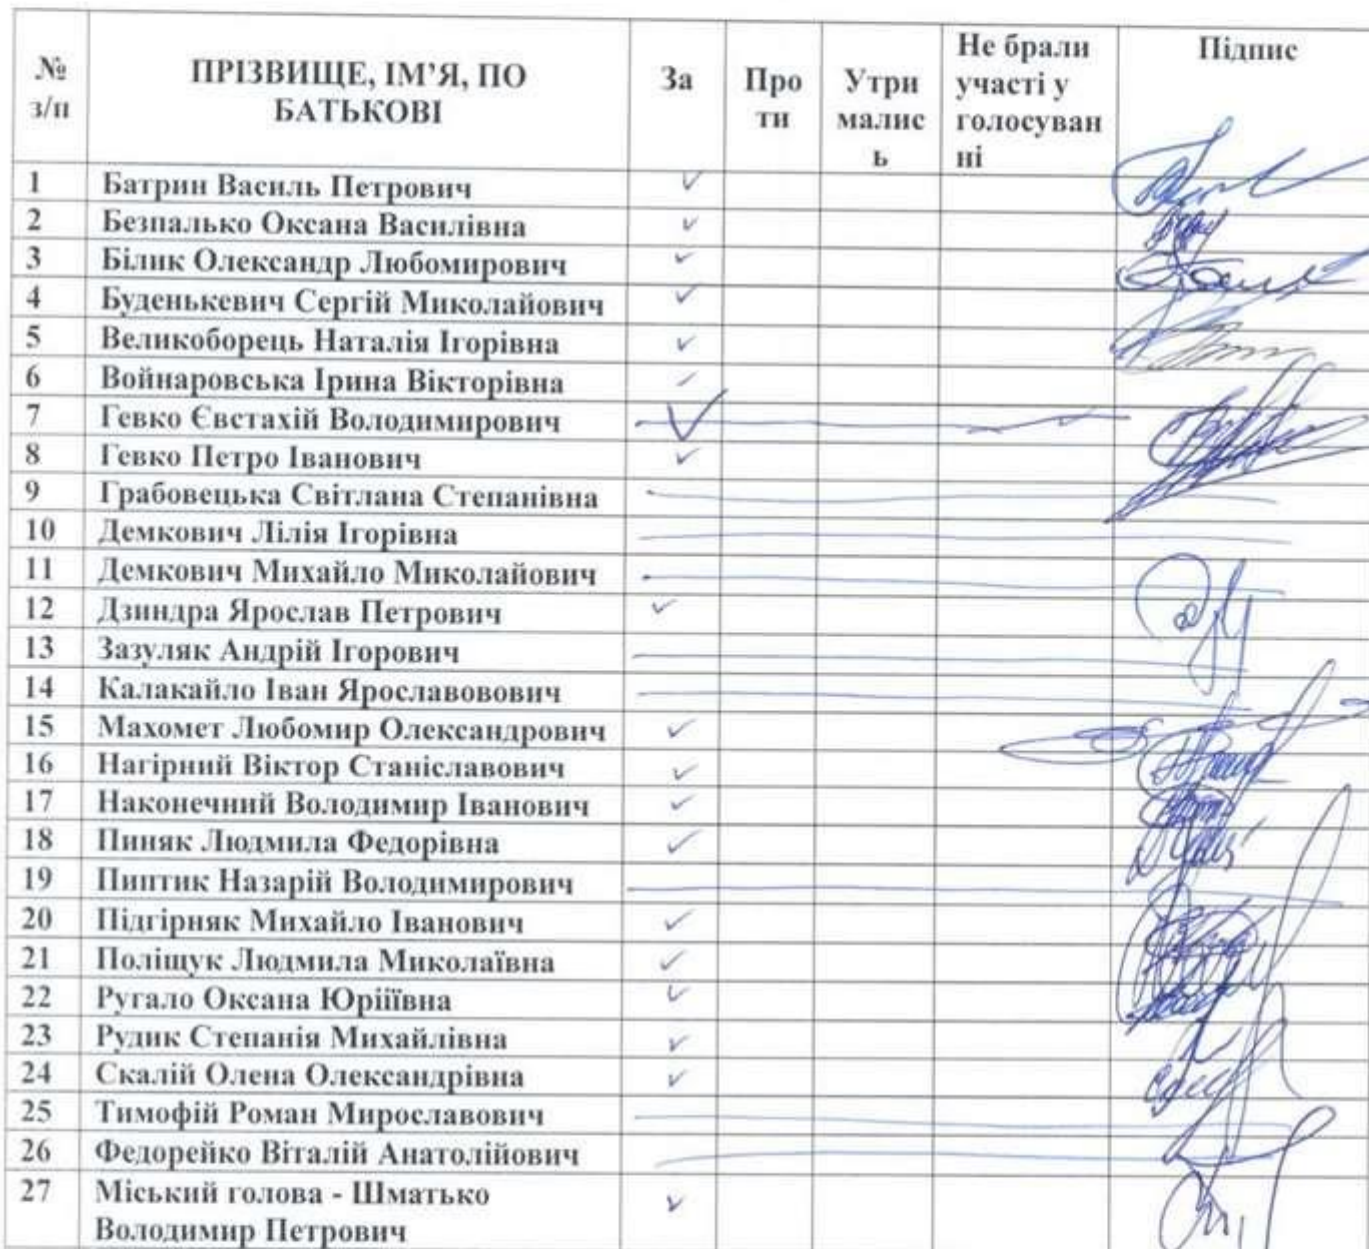 № з/п
ПРІЗВИЩЕ, ІМ’Я, ПО БАТЬКОВІ
За
Про
ти
Утри
малис
ь
Не брали
участі у
голосуван
ні
Підпис
1 Батрин Василь Петрович ✓
2 Безпалько Оксана Василівна ✓
3 Білик Олександр Любомирович ✓
4 Буденькевич Сергій Миколайович ✓
5 Великоборець Наталія Ігорівна ✓
6 Войнаровська Ірина Вікторівна ✓
7 Гевко Євстахій Володимирович ✓
8 Гевко Петро Іванович ✓
9 Грабовецька Світлана Степанівна
10 Демкович Лілія Ігорівна
11 Демкович Михайло Миколайович
12 Дзиндра Ярослав Петрович ✓
13 Зазуляк Андрій Ігорович
14 Калакайло Іван Ярославовович
15 Махомет Любомир Олександрович ✓
16 Нагірний Віктор Станіславович ✓
17 Наконечний Володимир Іванович ✓
18 Пиняк Людмила Федорівна ✓
19 Пиптик Назарій Володимирович
20 Підгірняк Михайло Іванович ✓
21 Поліщук Людмила Миколаївна ✓
22 Ругало Оксана Юріїївна ✓
23 Рудик Степанія Михайлівна ✓
24 Скалій Олена Олександрівна ✓
25 Тимофій Роман Мирославович
26 Федорейко Віталій Анатолійович
27 Міський голова - Шматько ✓
Володимир Петрович